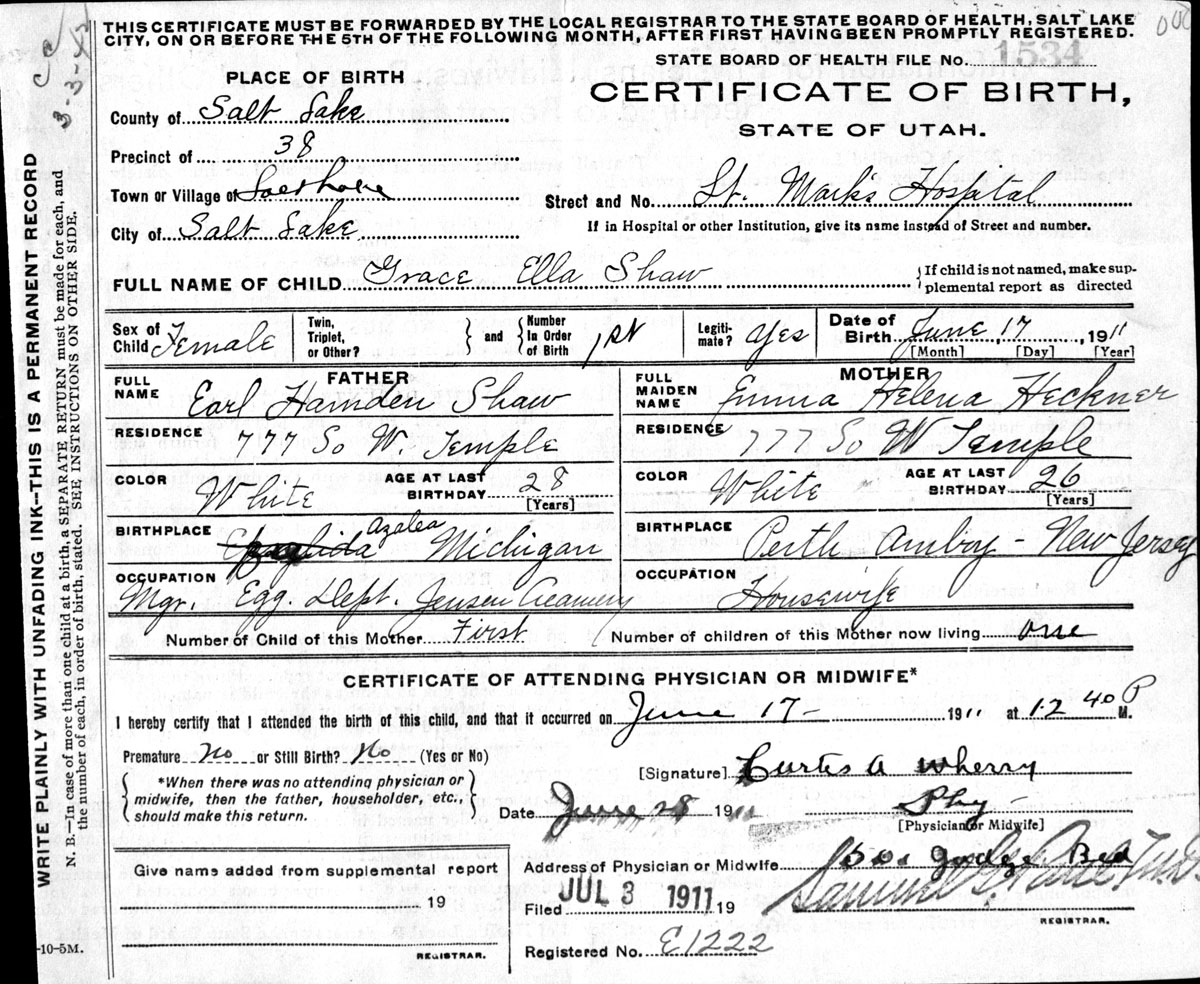 THIS CERTIFICATE MUST BE FORWARDED BY THE LOCAL REGISTRAR TO THE STATE BOARD OF HEALTH, SALT LAKE
CITY, ON OR BEFORE THE 5TH OF THE FOLLOWING MONTH, AFTER FIRST HAVING BEEN PROMPTLY REGISTERED.
STATE BOARD OF HEALTH FILE No. 1534
PLACE OF BIRTH
CERTIFICATE OF BIRTH,
STATE OF UTAH.
County of Salt Lake
Precinct of 38
Town or Village of
Street and No. St. Mark's Hospital
City of Salt Lake
If in Hospital or other Institution, give its name instead of Street and number.
FULL NAME OF CHILD Grace Ella Shaw
If child is not named, make sup-
plemental report as directed
Sex of Child Female
Twin, Triplet, or Other? and Number In Order of Birth 1st
Legiti-mate? yes
Date of Birth June 17, 1911
[Month] [Day] [Year]
FATHER
FULL NAME Earl Hamden Shaw
RESIDENCE 777 So W. Temple
COLOR White AGE AT LAST BIRTHDAY 28
[Years]
BIRTHPLACE Azalea Michigan
OCCUPATION Mgr. Egg. Dept. Jensen Creamery
MOTHER
FULL MAIDEN NAME Emma Helena Heckner
RESIDENCE 777 So W Temple
COLOR White AGE AT LAST BIRTHDAY 26
[Years]
BIRTHPLACE Perth Amboy - New Jersey
OCCUPATION Housewife
Number of Child of this Mother First Number of children of this Mother now living one
CERTIFICATE OF ATTENDING PHYSICIAN OR MIDWIFE*
I hereby certify that I attended the birth of this child, and that it occurred on June 17- 1911 at 12 40 P M.
Premature No or Still Birth? No (Yes or No)
*When there was no attending physician or
midwife, then the father, householder, etc.,
should make this return.
[Signature] Curtis A Wherry
Date June 28 1911 Phy -
[Physician or Midwife]
Address of Physician or Midwife
Filed JUL 3 1911 19
REGISTRAR.
Registered No. E1222
Give name added from supplemental report
19
REGISTRAR.
-10-5M.
WRITE PLAINLY WITH UNFADING INK—THIS IS A PERMANENT RECORD
N. B.—In case of more than one child at a birth, a SEPARATE RETURN must be made for each, and
the number of each, in order of birth, stated. SEE INSTRUCTIONS ON OTHER SIDE.